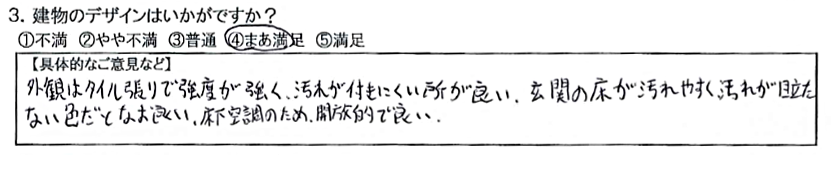 3. 建物のデザインはいかがですか？
①不満 ②やや不満 ③普通 ④まあ満足 ⑤満足
【具体的なご意見など】
外観はタイル張りで強度が強く、汚れが付もにくい所が良い、玄関の床が汚れやすく汚れが目立た
ない色だとなお良い、床下空調のため、開放的で良い.